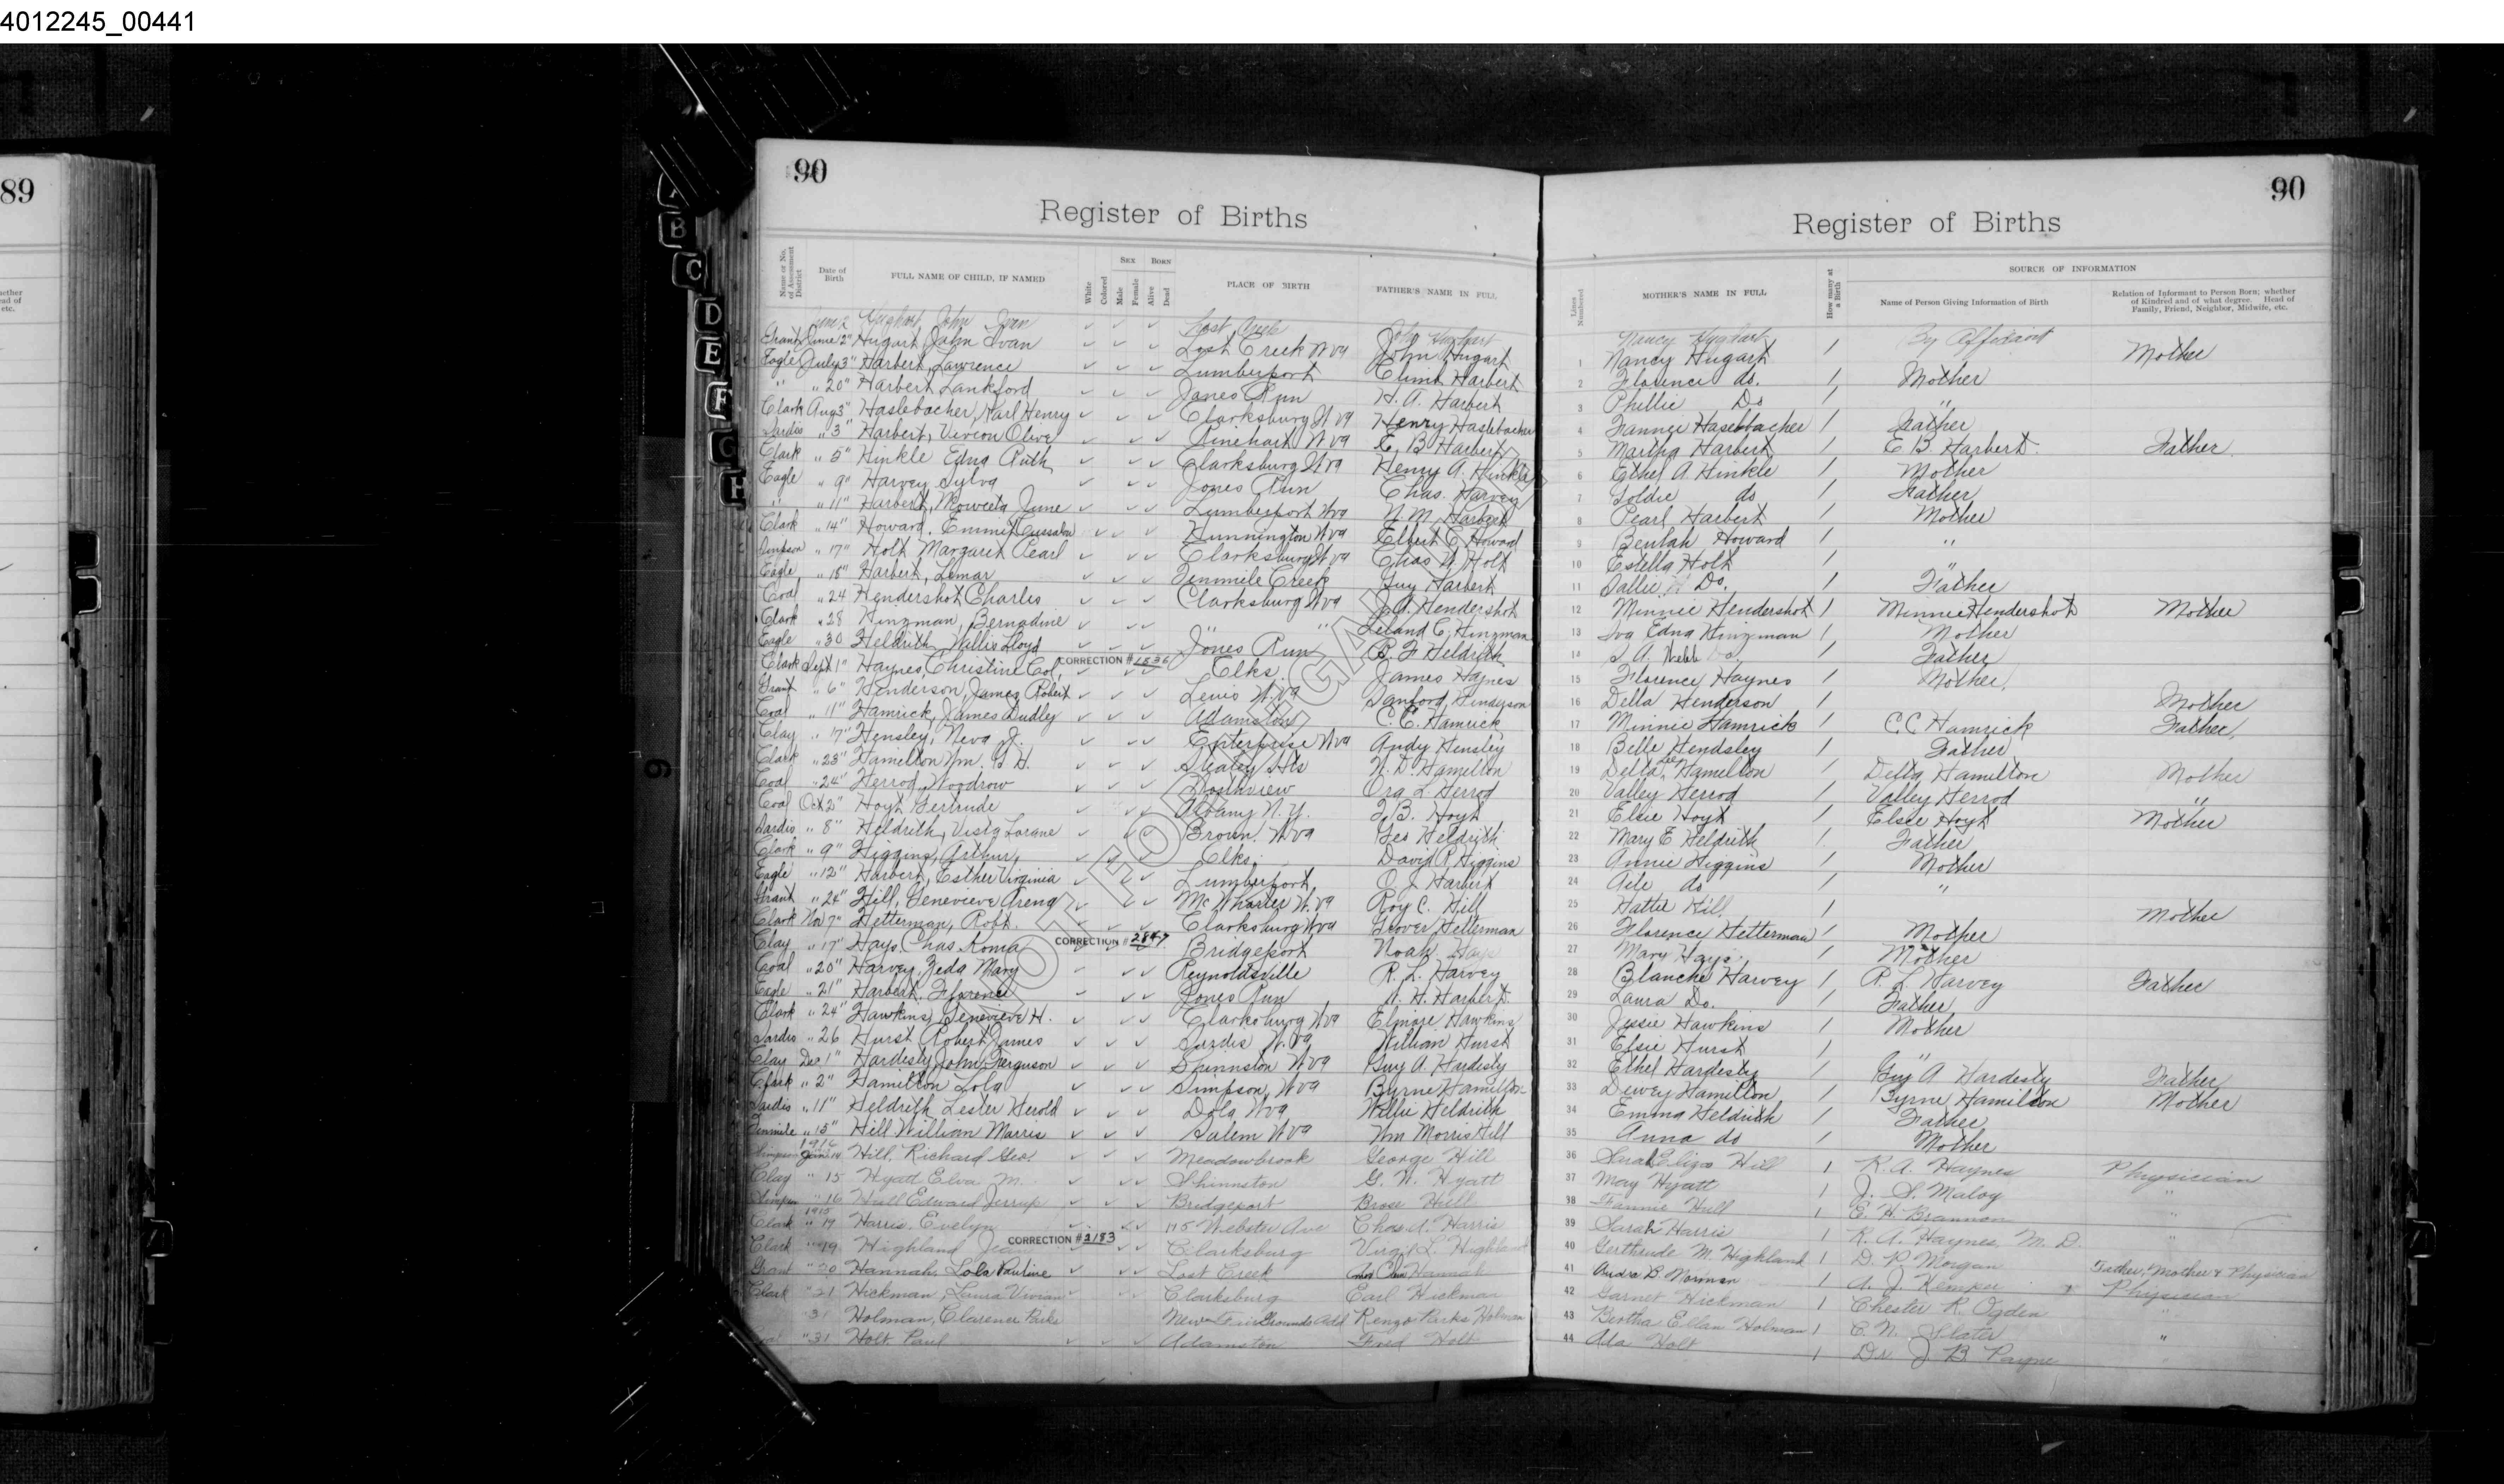 4012245_00441
89
90
Register of Births
Name or No. of Assessment District | Date of Birth | FULL NAME OF CHILD, IF NAMED | White | Colored | SEX Male Female | BORN Alive Dead | PLACE OF BIRTH | FATHER'S NAME IN FULL
June 2 Hughart John Ivan Lost Creek John Hughart
Grant June 2" Hugart, John Ivan Lost Creek W Va John Hugart
Eagle July 3" Harbert, Lawrence Lumberport Harbert
" " 20" Harbert Lankford Jones Run H. A. Harbert
Clark Aug 3" Haslebacher, Karl Henry Clarksburg W Va Henry Haslebacher
Sardis " 3" Harbert, Vivion Olive Rinehart W Va E. B Harbert
Clark " 5" Hinkle Edna Ruth Clarksburg W Va Henry A. Hinkle
Eagle " 9" Harvey Sylva Jones Run Chas. Harvey
" " 11" Harbert, June Lumberport W Va N. M. Harbert
Clark " 14" Howard, Emmit Hunnington W Va Elbert C. Howard
Simpson " 17" Holt Margaret Pearl Clarksburg W Va Chas W Holt
Eagle " 18" Harbert, Lemar Tenmile Creek Guy Harbert
Coal " 24 Hendershot Charles Clarksburg W Va J. A. Hendershot
Clark " 28 Hinzman, Bernadine " " Leland C. Hinzman
Eagle " 30 Heldreth Willis Lloyd Jones Run B. F Heldreth
Clark Sept 1" Haynes, Christine Col. CORRECTION #1536 Elks James Haynes
Grant " 6" Henderson, James Robert Lewis W. Va Sanford Henderson
Coal " 11" Hamrick, James Dudley Adamston C. C. Hamrick
Clay " 17" Hensley, Neva J. Enterprise W Va Andy Hensley
Clark " 23" Hamilton Wm. G H. Stealey Hts N. D. Hamilton
Coal " 24" Herrod, Woodrow Ora L. Herrod
Coal Oct 2" Hoyt, Gertrude Albany N. Y. F. B. Hoyt
Sardis " 8" Heldrith, Vista Lorane Brown W Va Geo Heldrith
Clark " 9" Higgins, Arthur, Elks David R Higgins
Eagle " 12" Harbert, Esther Virginia Lumberport, O J Harbert
Grant " 24" Hill, Genevieve Arena McWhorter W. Va Roy C. Hill
Clark Nov 7" Hetterman, Robt. Clarksburg W Va Grover Hetterman
Clay " 17" Hays. Chas Roma CORRECTION #2847 Bridgeport Noah Hays
Coal " 20" Harvey, Zeda Mary Reynoldsville R. L. Harvey
Eagle " 21" Harbert, Florence Jones Run W. H. Harbert
Clark " 24" Hawkins, Genevieve H. Clarksburg W Va Elmore Hawkins
Sardis " 26 Hurst Robert James Sardis W. Va William Hurst
Clay Dec 1" Hardesty, John Ferguson Shinnston W Va Guy A. Hardesty
Clark " 2" Hamilton Lola Simpson, W Va Byrne Hamilton
Sardis " 11" Heldrith Lester Herold Dola W Va Willie Heldrith
Tenmile " 15" Hill William Morris Salem W Va Wm Morris Hill
1916
Simpson Jan 14 Hill, Richard Geo. Meadowbrook George Hill
Clay " 15 Hyatt Elva M. Shinnston G. W. Hyatt
Simpson " 16 Hull Edward Bridgeport Brose Hull
1915
Clark " 17 Harris, Evelyn 115 Webster Ave Chas. A. Harris
Clark " 19 Highland Jean CORRECTION #2183 Clarksburg Virgil L. Highland
Grant " 20 Hannah, Lola Pauline Lost Creek Hannah
Clark " 21 Hickman, Laura Vivian Clarksburg Earl Hickman
31 Holman, Clarence Parks New Fair Grounds Add Renzo Parks Holman
Coal " 31 Holt, Paul Adamston Fred Holt
NOT FOR LEGAL USE
90
Register of Births
Lines Numbered | MOTHER'S NAME IN FULL | How many at a Birth | SOURCE OF INFORMATION
Name of Person Giving Information of Birth | Relation of Informant to Person Born; whether of Kindred and of what degree. Head of Family, Friend, Neighbor, Midwife, etc.
Nancy Hughart By Affidavit
1 Nancy Hugart 1 Mother
2 Florence do. 1 Mother
3 Phillie Do 1 "
4 Fannie Haselbacher 1 Father
5 Martha Harbert 1 E B. Harbert Father
6 Ethel A Hinkle 1 Mother
7 Goldie do 1 Father
8 Pearl Harbert 1 Mother
9 Beulah Howard 1 "
10 Estella Holt 1 "
11 Sallie Do. 1 Father
12 Minnie Hendershot 1 Minnie Hendershot Mother
13 Iva Edna Hinzman 1 Mother
14 S. A. Webb Father
15 Florence Haynes 1 Mother.
16 Della Henderson 1 Mother
17 Minnie Hamrick 1 C. C Hamrick Father,
18 Belle Hendsley 1 Father
19 Della Lee Hamilton 1 Della Hamilton Mother
20 Valley Herrod 1 Valley Herrod "
21 Elsie Hoyt 1 Elsie Hoyt Mother
22 Mary E Heldrith 1 Father
23 Annie Higgins 1 Mother
24 do 1 "
25 Hattie Hill, 1 Mother
26 Florence Hetterman 1 Mother
27 Mary Hays. 1 Mother
28 Blanche Harvey 1 R. L. Harvey Father
29 Laura Do. 1 Father
30 Jessie Hawkins 1 Mother
31 Elsie Hurst 1 "
32 Ethel Hardesty 1 Guy A Hardesty Father
33 Dewey Hamilton 1 Byrne Hamilton Mother
34 Emma Heldrith 1 Father
35 Anna do 1 Mother
36 Sarah Eliza Hill 1 R. A. Haynes Physician
37 May Hyatt 1 J. S. Maloy "
38 Fannie Hull 1 E. H. Brannon "
39 Sarah Harris 1 R. A. Haynes, M. D. "
40 Gerthrude M. Highland 1 D. P. Morgan Father, Mother & Physician
41 Audra B. Norman 1 A. J. Kemper Physician
42 Garnet Hickman 1 Chester R. Ogden "
43 Bertha Ellen Holman 1 C. N. Slater "
44 Ada Holt 1 Dr J B Payne
A
B
C
D
E
F
G
H